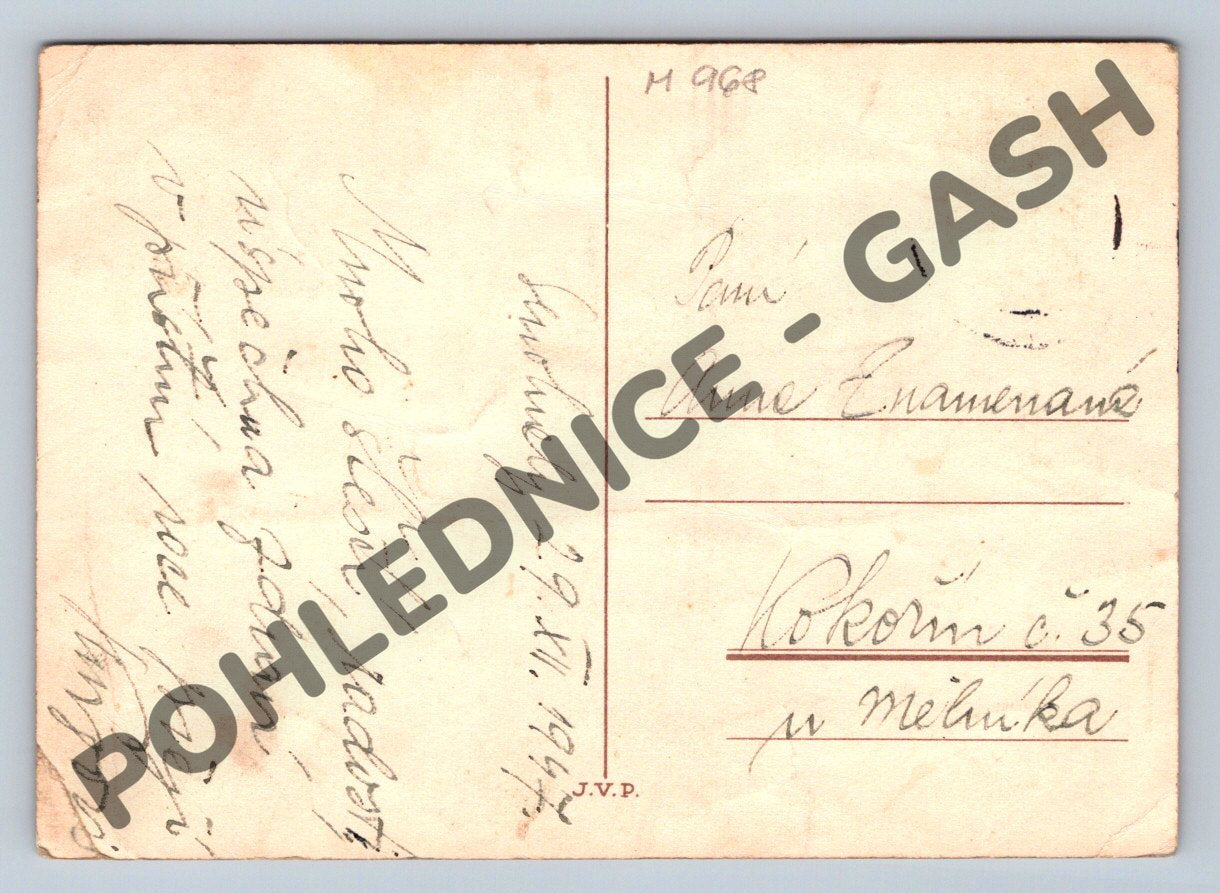 M 968
29. XII. 1947.
Mnoho štěstí, radosti,
úspěchu a zdraví
v příštím roce přejí
Paní
Anna Znamenaná
Kokořín č. 35
u Mělníka
J.V.P.
POHLEDNICE - GASH